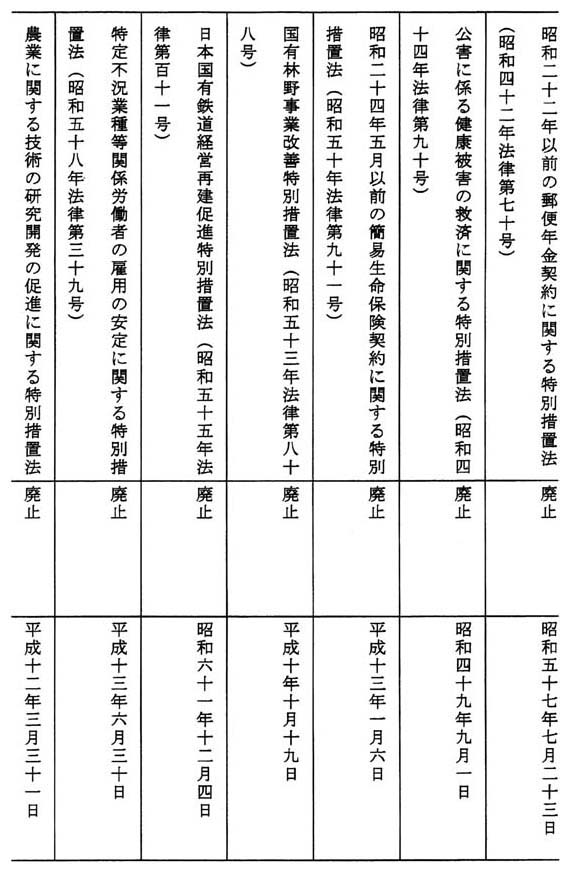 昭和二十二年以前の郵便年金契約に関する特別措置法
(昭和四十二年法律第七十号)
廃止
昭和五十七年七月二十三日
公害に係る健康被害の救済に関する特別措置法(昭和四
十四年法律第九十号)
廃止
昭和四十九年九月一日
昭和二十四年五月以前の簡易生命保険契約に関する特別
措置法(昭和五十年法律第九十一号)
廃止
平成十三年一月六日
国有林野事業改善特別措置法(昭和五十三年法律第八十
八号)
廃止
平成十年十月十九日
日本国有鉄道経営再建促進特別措置法(昭和五十五年法
律第百十一号)
廃止
昭和六十一年十二月四日
特定不況業種等関係労働者の雇用の安定に関する特別措
置法(昭和五十八年法律第三十九号)
廃止
平成十三年六月三十日
農業に関する技術の研究開発の促進に関する特別措置法
廃止
平成十二年三月三十一日